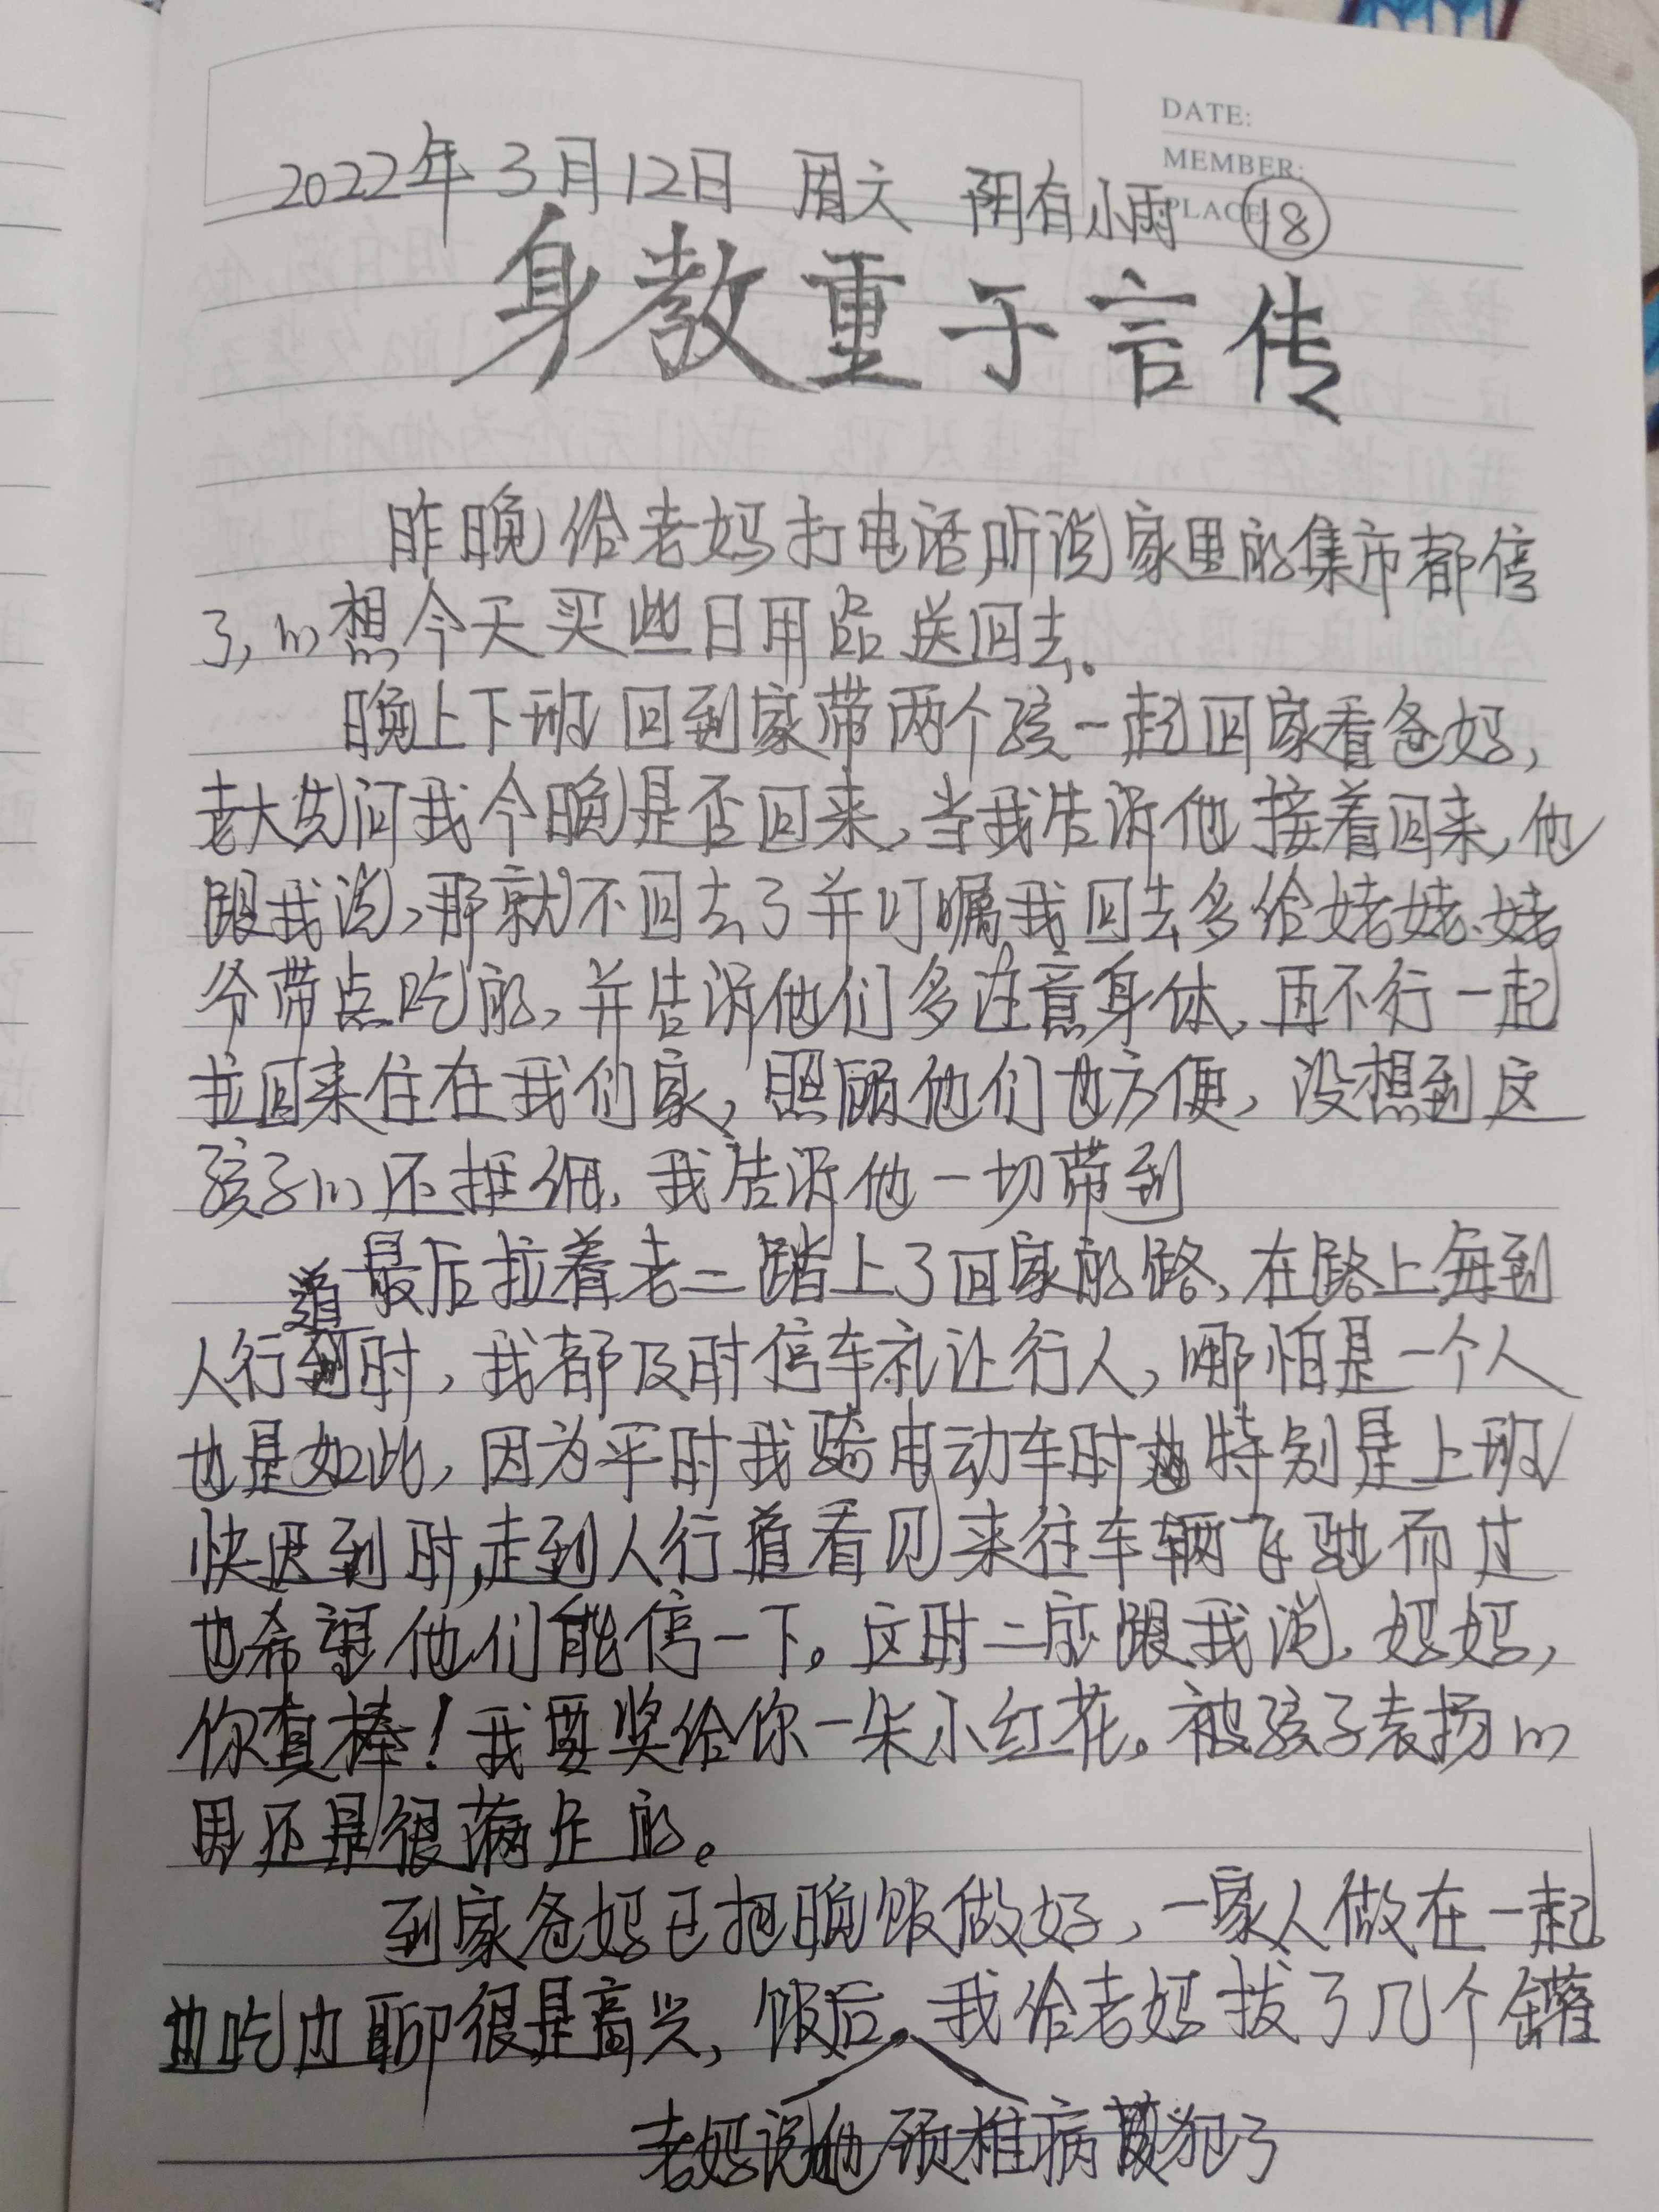 DATE:
MEMBER:
PLACE:
2022年3月12日 周六 阴有小雨 ⑱
身教重于言传
昨晚给老妈打电话听说家里的集市都停
了,心想今天买些日用品送回去。
晚上下班回到家带两个孩一起回家看爸妈,
老大先问我今晚是否回来,当我告诉他接着回来,他
跟我说,那就不回去了并叮嘱我回去多给姥姥、姥
爷带点吃的,并告诉他们多注意身体,再不行一起
拉回来住在我们家,照顾他们也方便,没想到这
孩子心还挺细,我告诉他一切带到
最后拉着老二踏上了回家的路,在路上每到
人行道时,我都及时停车礼让行人,哪怕是一个人
也是如此,因为平时我骑电动车时特别是上班
快迟到时,走到人行道看见来往车辆飞驰而过
也希望他们能停一下。这时二宝跟我说,妈妈,
你真棒!我要奖给你一朵小红花。被孩子表扬心
里还是很满足的。
到家爸妈已把晚饭做好,一家人做在一起
边吃边聊很是高兴,饭后,我给老妈拔了几个罐
老妈说他颈椎病又犯了